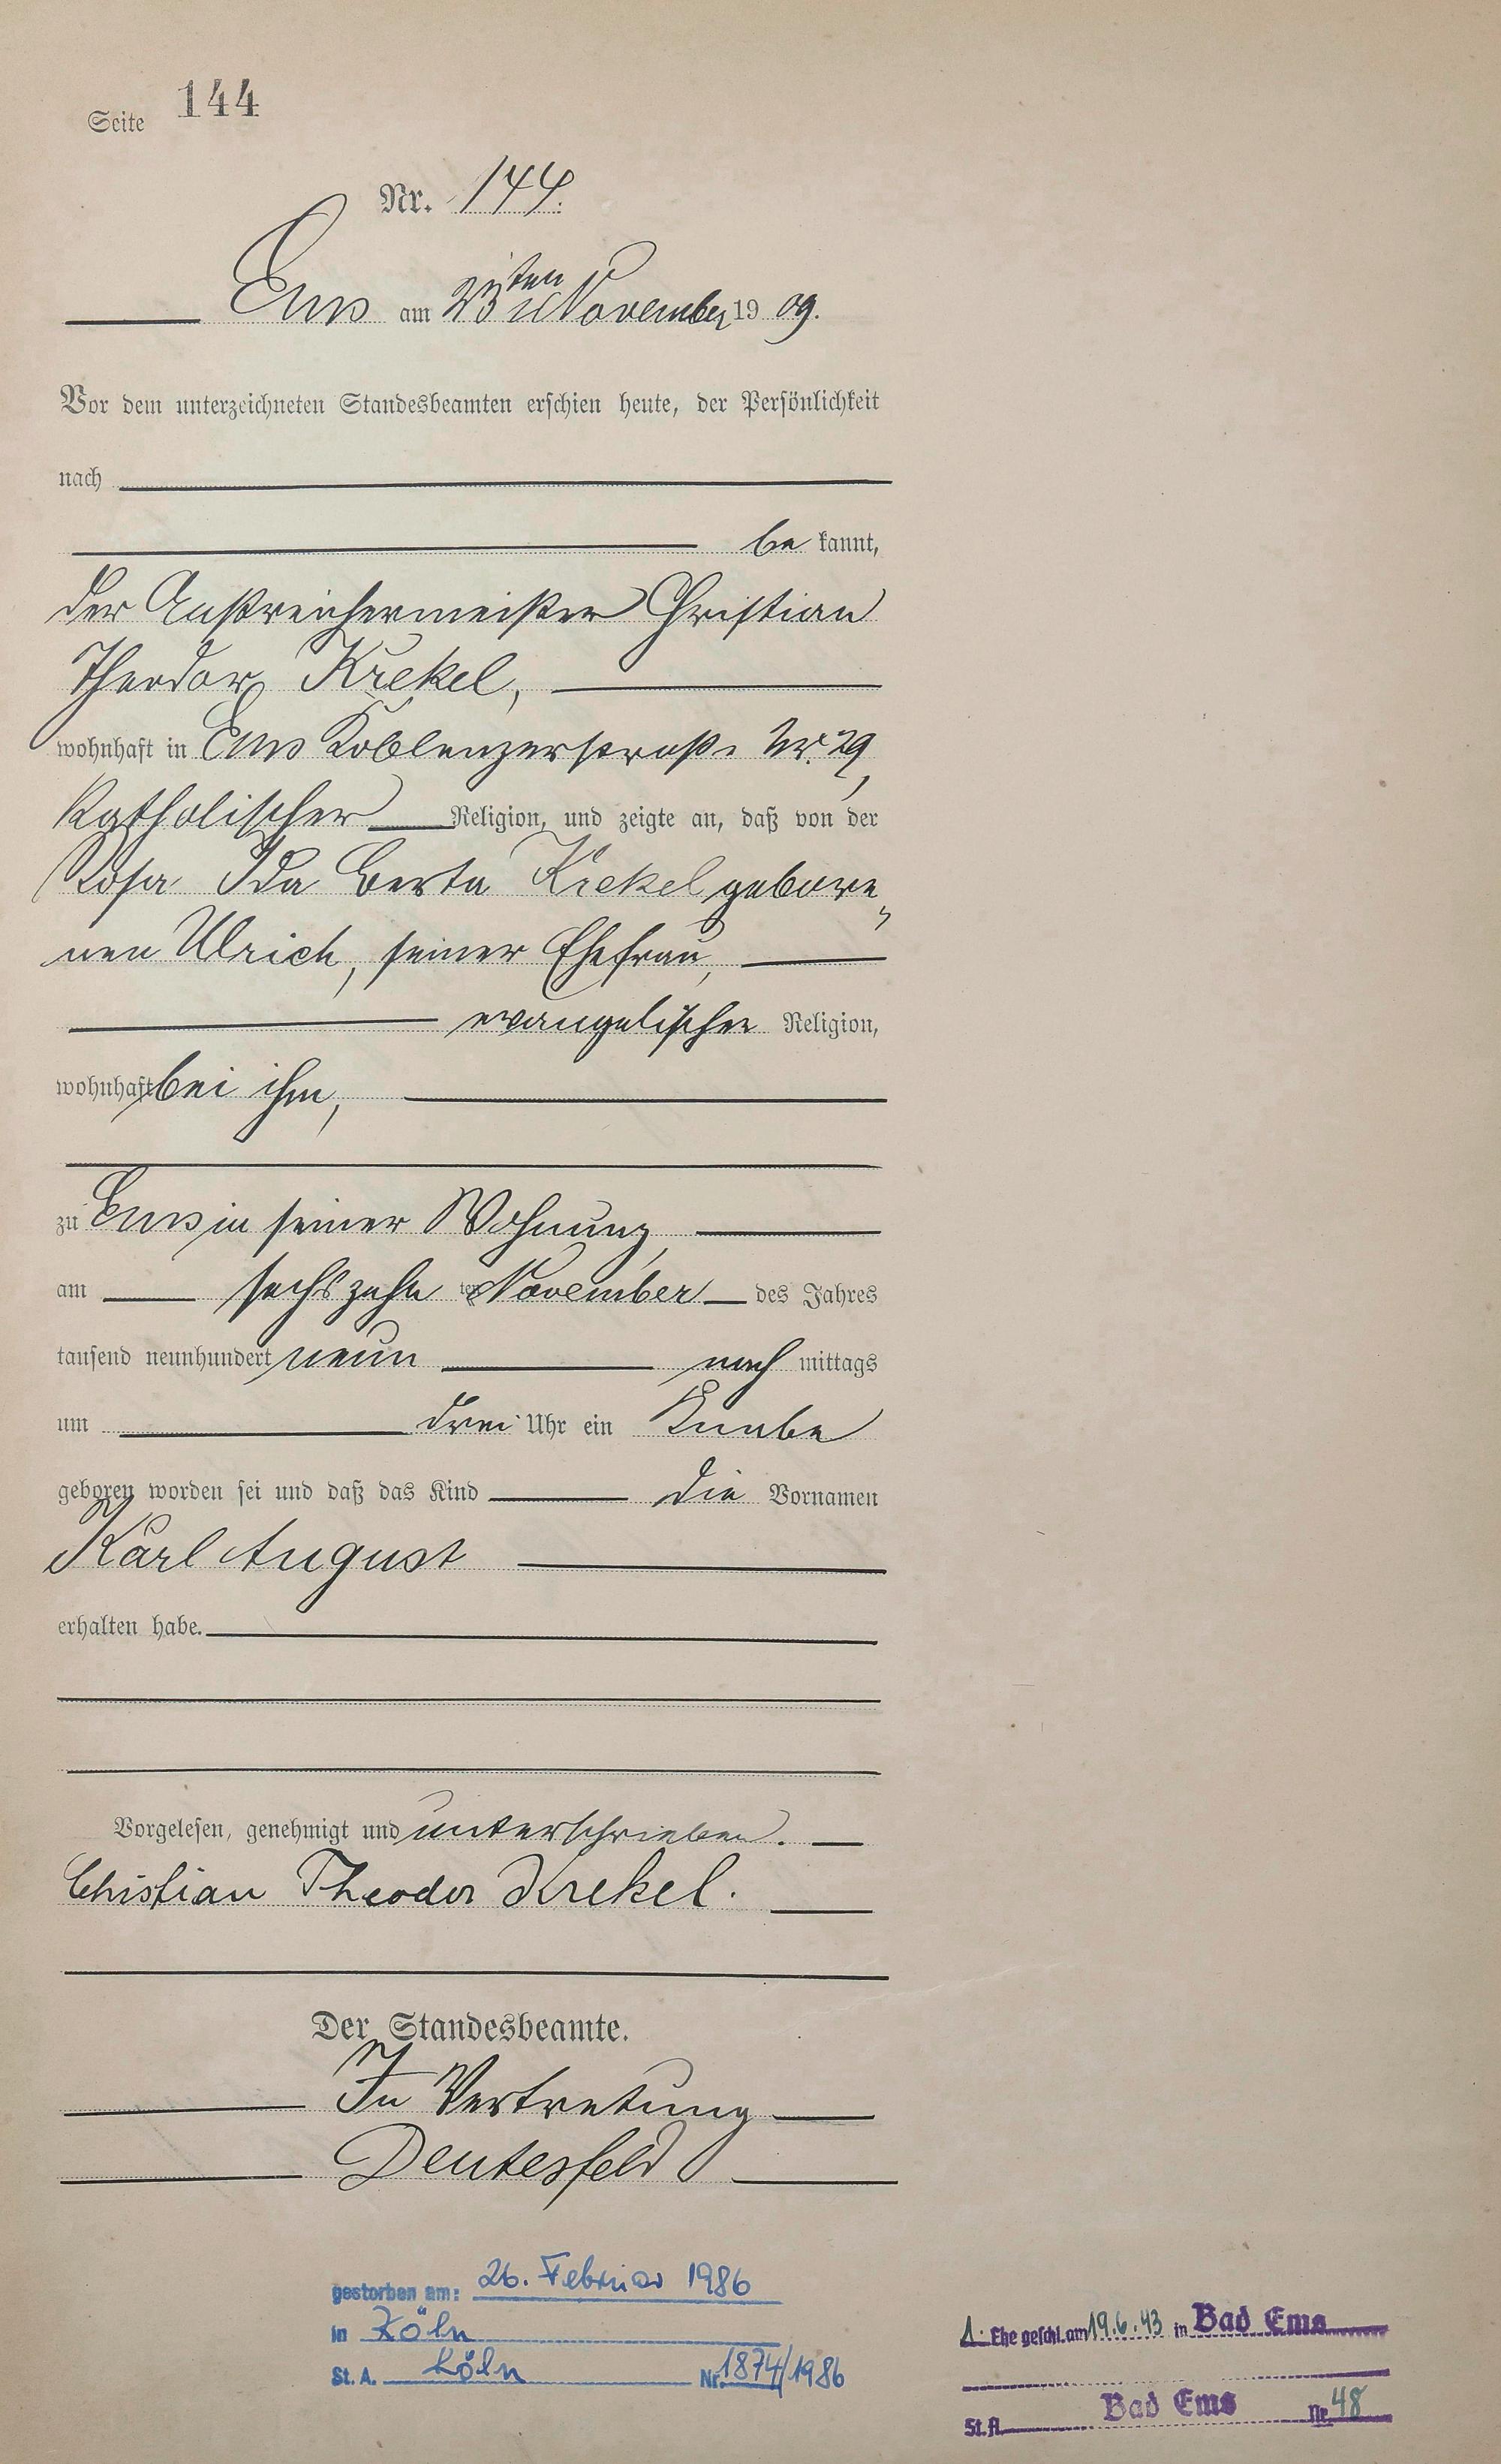 Seite 144
Nr. 144.
Ems am 23sten November 1909.
Vor dem unterzeichneten Standesbeamten erschien heute, der Persönlichkeit
nach
be kannt,
der Anstreichermeister Christian
Theodor Krekel,
wohnhaft in Ems Koblenzerstraße Nr. 29,
katholischer Religion, und zeigte an, daß von der
Rosa Ida Berta Krekel gebore„
nen Ulrich, seiner Ehefrau,
evangelischer Religion,
wohnhaft bei ihm,
zu Ems in seiner Wohnung,
am sechszehn ten November des Jahres
tausend neunhundert neun nach mittags
um drei Uhr ein Knabe
geboren worden sei und daß das Kind die Vornamen
Karl August
erhalten habe.
Vorgelesen, genehmigt und unterschrieben.
Christian Theodor Krekel.
Der Standesbeamte.
In Vertretung
Deutesfeld
gestorben am: 26. Februar 1986
in Köln
St. A. Köln Nr. 1874/1986
1. Ehe geschl. am 19.6.43 in Bad Ems
St. A. Bad Ems Nr. 48